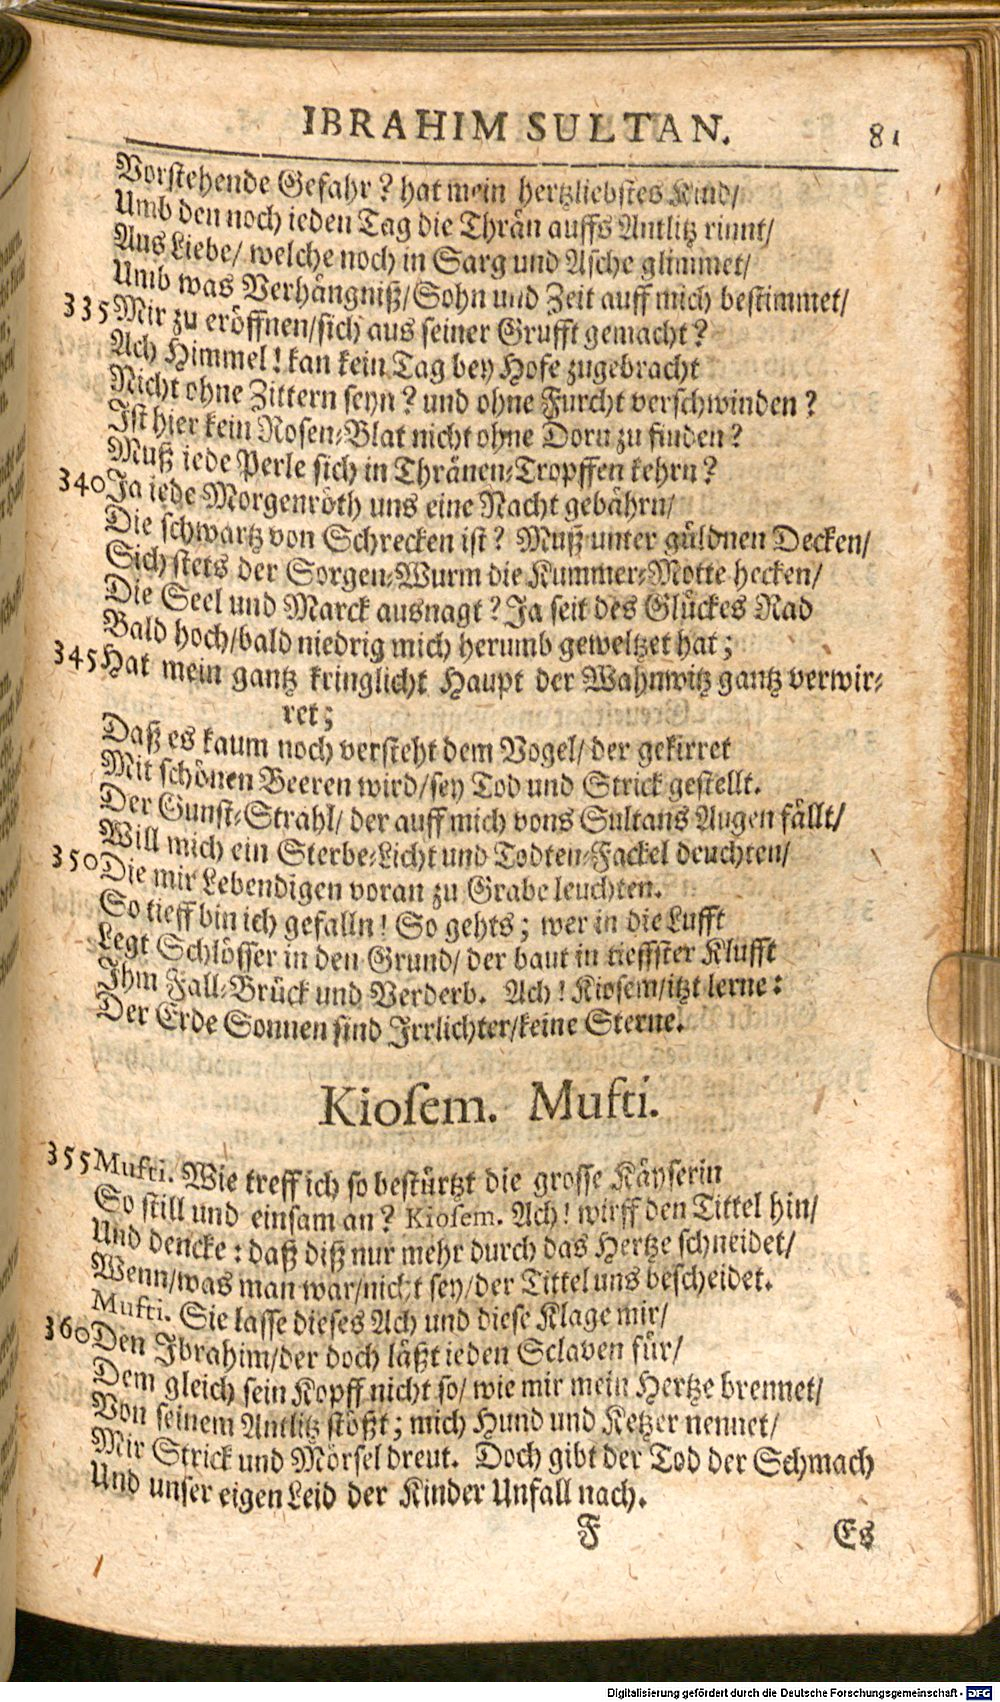 IBRAHIM SULTAN. 81
Vorstehende Gefahr? hat mein hertzliebstes Kind/
Umb den noch ieden Tag die Thrän auffs Antlitz rinnt/
Aus Liebe/ welche noch in Sarg und Asche glimmet/
Umb was Verhängniß/ Sohn und Zeit auff mich bestimmet/
335 Mir zu eröffnen/ sich aus seiner Grufft gemacht?
Ach Himmel! kan kein Tag bey Hofe zugebracht
Nicht ohne Zittern seyn? und ohne Furcht verschwinden?
Ist hier kein Rosen-Blat nicht ohne Dorn zu finden?
Muß iede Perle sich in Thränen-Tropffen kehrn?
340 Ja iede Morgenröth uns eine Nacht gebährn/
Die schwartz von Schrecken ist? Muß unter güldnen Decken/
Sich stets der Sorgen-Wurm die Kummer-Motte hecken/
Die Seel und Marck ausnagt? Ja seit des Glückes Rad
Bald hoch/ bald niedrig mich herumb geweltzet hat;
345 Hat mein gantz kringlicht Haupt der Wahnwitz gantz verwir-
ret;
Daß es kaum noch versteht dem Vogel/ der gekirret
Mit schönen Beeren wird/ sey Tod und Strick gestellt.
Der Gunst-Strahl/ der auff mich vons Sultans Augen fällt/
Will mich ein Sterbe-Licht und Todten-Fackel deuchten/
350 Die mir Lebendigen voran zu Grabe leuchten.
So tieff bin ich gefalln! So gehts; wer in die Lufft
Legt Schlösser in den Grund/ der baut in tieffster Klufft
Ihm Fall-Brück und Verderb. Ach! Kiosem/ itzt lerne:
Der Erde Sonnen sind Irrlichter/ keine Sterne.
Kiosem. Mufti.
355 Mufti. Wie treff ich so bestürtzt die grosse Käyserin
So still und einsam an? Kiosem. Ach! wirff den Tittel hin/
Und dencke: daß diß nur mehr durch das Hertze schneidet/
Wenn/ was man war/ nicht sey/ der Tittel uns bescheidet.
Mufti. Sie lasse dieses Ach und diese Klage mir/
360 Den Ibrahim/ der doch läßt ieden Sclaven für/
Dem gleich sein Kopff nicht so/ wie mir mein Hertze brennet/
Von seinem Antlitz stößt; mich Hund und Ketzer nennet/
Mir Strick und Mörsel dreut. Doch gibt der Tod der Schmach
Und unser eigen Leid der Kinder Unfall nach.
F Es
Digitalisierung gefördert durch die Deutsche Forschungsgemeinschaft - DFG